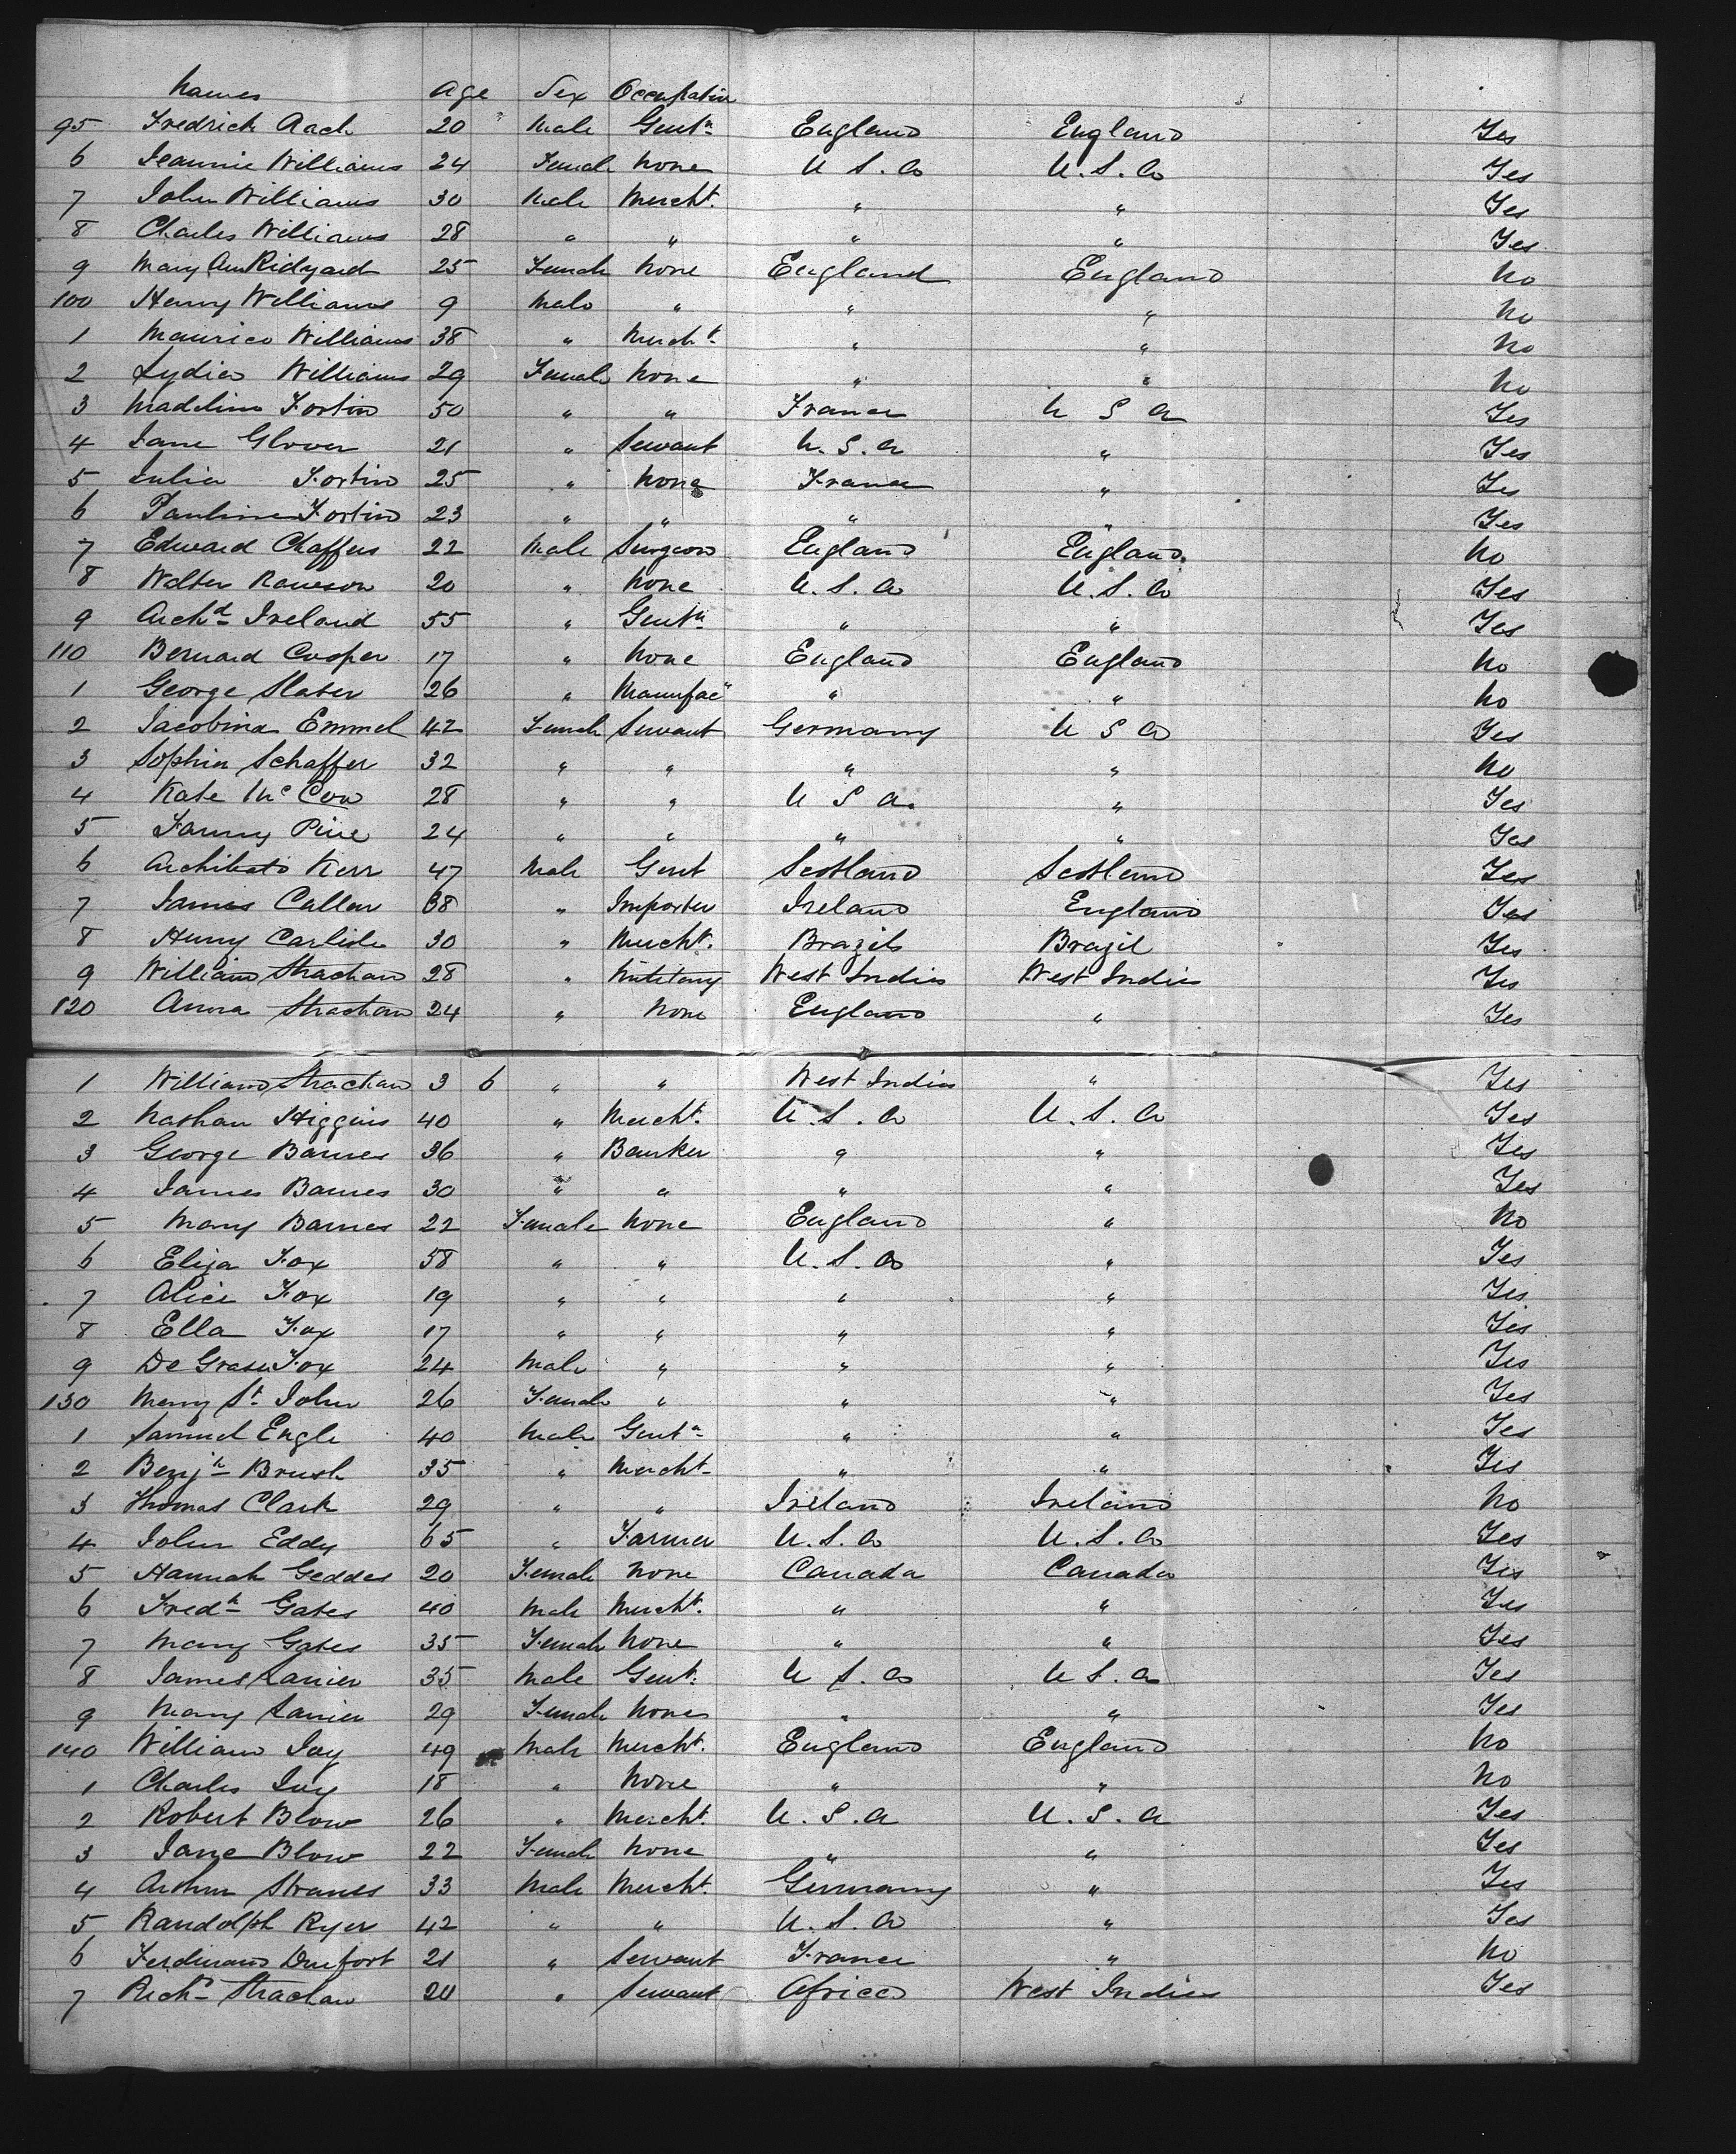 Names Age Sex Occupation
95 Fredrich Aach 20 Male Gentn England England Yes
6 Jeannie Williams 24 Female None U S. A U. S. A Yes
7 John Williams 30 Male Mercht. " " Yes
8 Charles Williams 28 " " " " Yes
9 Mary Ann Ridyard 25 Female None England England No
100 Henry Williams 9 Male " " " No
1 Maurice Williams 38 " Mercht " " No
2 Lydia Williams 29 Female None " " No
3 Madeline Fortin 50 " " France U S A Yes
4 Jane Glover 21 " Servant U. S. A " Yes
5 Julia Fortin 25 " None France " Yes
6 Pauline Fortin 23 " " " " Yes
7 Edward Chaffers 22 Male Surgeon England England. No
8 Walter Rawson 20 " None U. S. A U. S. A Yes
9 Archd Ireland 55 " Gentn " " Yes
110 Bernard Cooper 17 " None England England No
1 George Slater 26 " Manufac " " No
2 Jacobina Emmel 42 Female Servant Germany U S A Yes
3 Sophia Schaffer 32 " " " " No
4 Kate McCow 28 " " U S A. " Yes
5 Fanny Pine 24 " " " " Yes
6 Archibald Kerr 47 Male Gent Scotland Scotland Yes
7 James Callan 38 " Importer Ireland England Yes
8 Henry Carlisle 30 " Mercht. Brazils Brazil Yes
9 William Strachan 28 " Military West Indies West Indies Yes
120 Anna Strachan 24 " None England " Yes
1 William Strachan 3 6 " " West Indies " Yes
2 Nathan Higgins 40 " Mercht. U. S. A U. S. A Yes
3 George Barnes 36 " Banker " " Yes
4 James Barnes 30 " " " " Yes
5 Mary Barnes 22 Female None England " No
6 Eliza Fox 58 " " U. S. A " Yes
7 Alice Fox 19 " " " " Yes
8 Ella Fox 17 " " " " Yes
9 De Grasse Fox 24 Male " " " Yes
130 Mary St John 26 Female " " " Yes
1 Samuel Engle 40 Male Gentn " " Yes
2 Benjn Brush 35 " Mercht " " Yes
3 Thomas Clark 29 " " Ireland Ireland No
4 John Eddy 65 " Farmer U. S. A U. S. A Yes
5 Hannah Geddes 20 Female None Canada Canada Yes
6 Fredk Gates 40 Male Mercht. " " Yes
7 Mary Gates 35 Female None " " Yes
8 James Lanier 35 Male Gent. U S. A U S. A Yes
9 Mary Lanier 29 Female None " " Yes
140 William Ivy 49 Male Mercht. England England No
1 Charles Ivy 18 " None " " No
2 Robert Blow 26 " Mercht. U. S. A U. S. A Yes
3 Jane Blow 22 Female None " " Yes
4 Arthur Straus 33 Male Mercht. Germany " Yes
5 Randolph Ryer 42 " " U. S. A " Yes
6 Ferdinand Durfort 21 " Servant France " No
7 Richd Strachan 20 " Servant Africa West Indies Yes